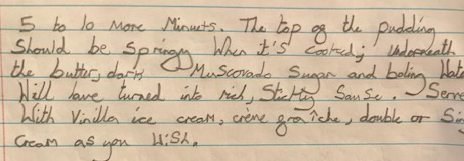 5 to 10 More Minuets. The top of the pudding
Should be Springy When it's Cooked; underneath
the butter, dark Muscovado Sugar and boling Wate
Will have turned into rich, Sticky Sause. Serve
With Vinilla ice cream, crème graîche, double or Sin
Cream as you Wish.